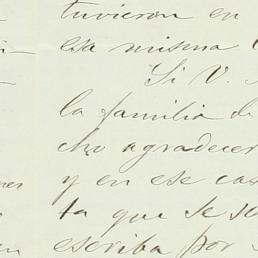 tuvieron en
esa misma
Si V.
la familia de
cho agradecer
y en ese cas
ta que se so
escriba por